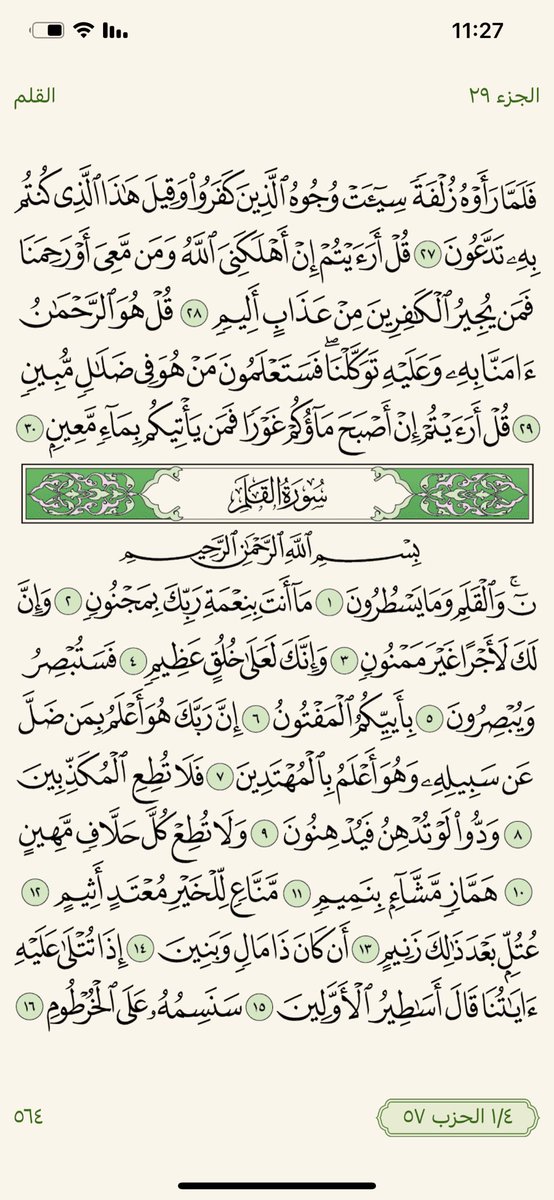 11:27
الجزء ٢٩
القلم
فَلَمَّا رَأَوْهُ زُلْفَةً سِيٓـَٔتْ وُجُوهُ ٱلَّذِينَ كَفَرُوا۟ وَقِيلَ هَـٰذَا ٱلَّذِى كُنتُم
بِهِۦ تَدَّعُونَ ٢٧ قُلْ أَرَءَيْتُمْ إِنْ أَهْلَكَنِىَ ٱللَّهُ وَمَن مَّعِىَ أَوْ رَحِمَنَا
فَمَن يُجِيرُ ٱلْكَـٰفِرِينَ مِنْ عَذَابٍ أَلِيمٍ ٢٨ قُلْ هُوَ ٱلرَّحْمَـٰنُ
ءَامَنَّا بِهِۦ وَعَلَيْهِ تَوَكَّلْنَا ۖ فَسَتَعْلَمُونَ مَنْ هُوَ فِى ضَلَـٰلٍ مُّبِينٍ
٢٩ قُلْ أَرَءَيْتُمْ إِنْ أَصْبَحَ مَآؤُكُمْ غَوْرًا فَمَن يَأْتِيكُم بِمَآءٍ مَّعِينٍ ٣٠
سُورَةُ القَلَمِ
بِسْمِ ٱللَّهِ ٱلرَّحْمَـٰنِ ٱلرَّحِيمِ
نٓ ۚ وَٱلْقَلَمِ وَمَا يَسْطُرُونَ ١ مَآ أَنتَ بِنِعْمَةِ رَبِّكَ بِمَجْنُونٍ ٢ وَإِنَّ
لَكَ لَأَجْرًا غَيْرَ مَمْنُونٍ ٣ وَإِنَّكَ لَعَلَىٰ خُلُقٍ عَظِيمٍ ٤ فَسَتُبْصِرُ
وَيُبْصِرُونَ ٥ بِأَييِّكُمُ ٱلْمَفْتُونُ ٦ إِنَّ رَبَّكَ هُوَ أَعْلَمُ بِمَن ضَلَّ
عَن سَبِيلِهِۦ وَهُوَ أَعْلَمُ بِٱلْمُهْتَدِينَ ٧ فَلَا تُطِعِ ٱلْمُكَذِّبِينَ
٨ وَدُّوا۟ لَوْ تُدْهِنُ فَيُدْهِنُونَ ٩ وَلَا تُطِعْ كُلَّ حَلَّافٍ مَّهِينٍ
١٠ هَمَّازٍ مَّشَّآءٍۭ بِنَمِيمٍ ١١ مَّنَّاعٍ لِّلْخَيْرِ مُعْتَدٍ أَثِيمٍ ١٢
عُتُلٍّۭ بَعْدَ ذَٰلِكَ زَنِيمٍ ١٣ أَن كَانَ ذَا مَالٍ وَبَنِينَ ١٤ إِذَا تُتْلَىٰ عَلَيْهِ
ءَايَـٰتُنَا قَالَ أَسَـٰطِيرُ ٱلْأَوَّلِينَ ١٥ سَنَسِمُهُۥ عَلَى ٱلْخُرْطُومِ ١٦
١/٤ الحزب ٥٧
٥٦٤